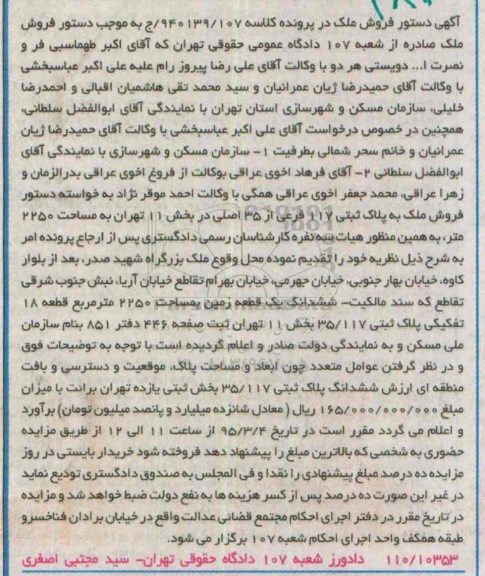 آگهی دستور فروش ملک در پرونده کلاسه ۹۴۰۱۳۹/۱۰۷/ج به موجب دستور فروش
ملک صادره از شعبه ۱۰۷ دادگاه عمومی حقوقی تهران که آقای اکبر طهماسبی فر و
نصرت ا... دویستی هر دو با وکالت آقای علی رضا پیروز رام علیه علی اکبر عباسبخشی
با وکالت آقای حمیدرضا ژیان عمرانیان و سید محمد تقی هاشمیان اقبالی و احمدرضا
خلیلی، سازمان مسکن و شهرسازی استان تهران با نمایندگی آقای ابوالفضل سلطانی،
همچنین در خصوص درخواست آقای علی اکبر عباسبخشی با وکالت آقای حمیدرضا ژیان
عمرانیان و خانم سحر شمالی بطرفیت ۱- سازمان مسکن و شهرسازی با نمایندگی آقای
ابوالفضل سلطانی ۲- آقای فرهاد اخوی عراقی بوکالت از فروغ اخوی عراقی بدرالزمان و
زهرا عراقی، محمد جعفر اخوی عراقی همگی با وکالت احمد موقر نژاد به خواسته دستور
فروش ملک به پلاک ثبتی ۱۱۷ فرعی از ۳۵ اصلی در بخش ۱۱ تهران به مساحت ۲۲۵۰
متر، به همین منظور هیات سه نفره کارشناسان رسمی دادگستری پس از ارجاع پرونده امر
به شرح ذیل نظریه خود را تقدیم نموده محل وقوع ملک بزرگراه شهید صدر، بعد از بلوار
کاوه، خیابان بهار جنوبی، خیابان جهرمی، خیابان بهرام تقاطع خیابان آریا، نبش جنوب شرقی
تقاطع که سند مالکیت- ششدانگ یک قطعه زمین بمساحت ۲۲۵۰ مترمربع قطعه ۱۸
تفکیکی پلاک ثبتی ۳۵/۱۱۷ بخش ۱۱ تهران ثبت صفحه ۴۴۶ دفتر ۸۵۱ بنام سازمان
ملی مسکن و به نمایندگی دولت صادر و اعلام گردیده است با توجه به توضیحات فوق
و در نظر گرفتن عوامل متعدد چون ابعاد و مساحت پلاک، موقعیت و دسترسی و بافت
منطقه ای ارزش ششدانگ پلاک ثبتی ۳۵/۱۱۷ بخش ثبتی یازده تهران برانت با میزان
مبلغ ۱۶۵/۰۰۰/۰۰۰/۰۰۰ ریال ( معادل شانزده میلیارد و پانصد میلیون تومان) برآورد
و اعلام می گردد مقرر است در تاریخ ۹۵/۳/۴ از ساعت ۱۱ الی ۱۲ از طریق مزایده
حضوری به شخصی که بالاترین مبلغ را پیشنهاد دهد فروخته شود خریدار بایستی در روز
مزایده ده درصد مبلغ پیشنهادی را نقدا و فی المجلس به صندوق دادگستری تودیع نماید
در غیر این صورت ده درصد پس از کسر هزینه ها به نفع دولت ضبط خواهد شد و مزایده
در تاریخ مقرر در دفتر اجرای احکام مجتمع قضائی عدالت واقع در خیابان برادان فناخسرو
طبقه همکف واحد اجرای احکام شعبه ۱۰۷ برگزار می شود.
۱۱۰/۱۰۳۵۳ دادورز شعبه ۱۰۷ دادگاه حقوقی تهران- سید مجتبی اصغری